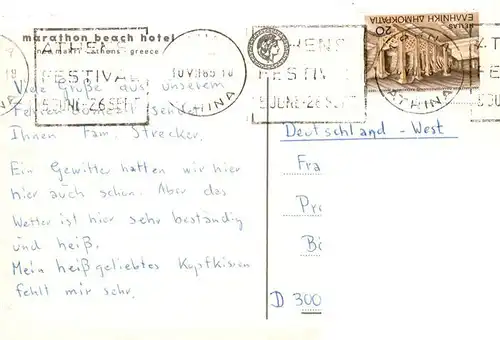 marathon beach hotel
nea makri - athens - greece
ATHENS
FESTIVAL
5 JUNE - 26 SEPT
ATHINA
ΕΛΛΑΣ
ΕΛΛΗΝΙΚΗ ΔΗΜΟΚΡΑΤΙΑ
20
ATHINA
FESTIV
5 JUNE - 26 SE
Viele Grüße aus unserem
sendet
Ihnen Fam. Strecker.
Ein Gewitter hatten wir hier
hier auch schon. Aber das
Wetter ist hier sehr beständig
und heiß.
Mein heißgeliebtes Kopfkissen
fehlt mir sehr.
Deutschland - West
Fra
D 300